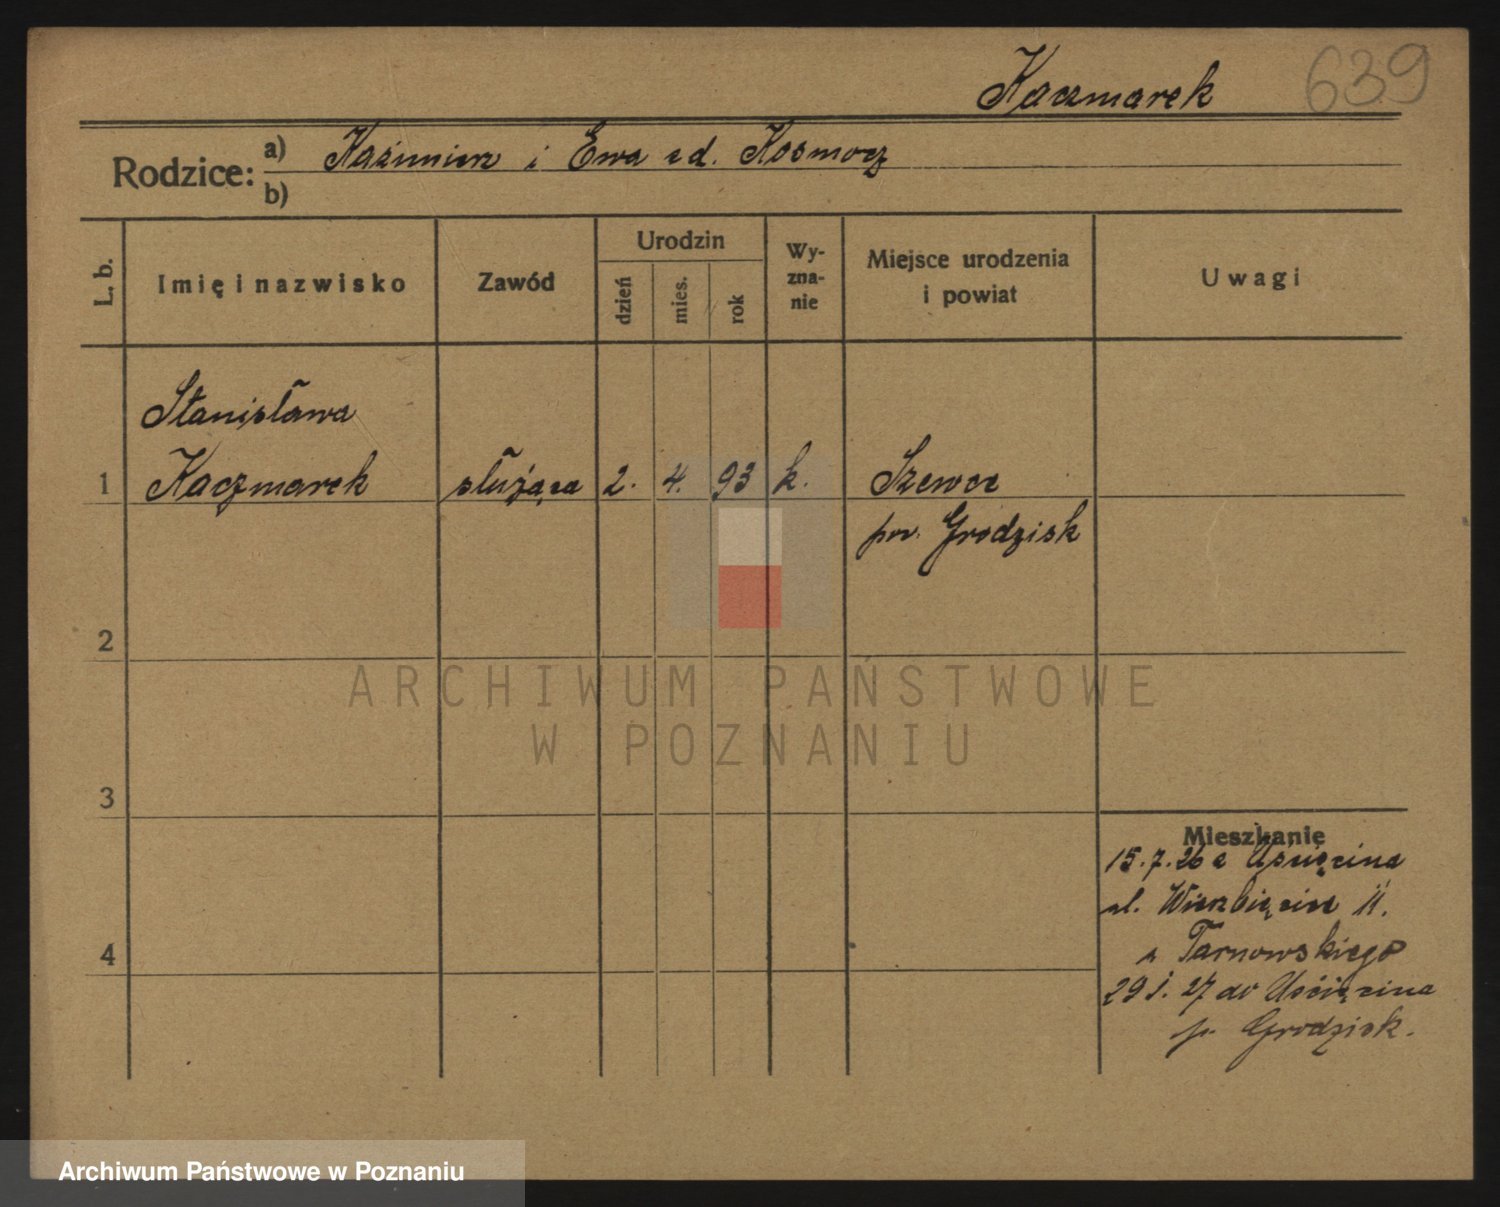 Kaczmarek 639
Rodzice: a) Kaźmierz i Ewa zd. Kosmocz
b)
L. b.
Imię i nazwisko
Zawód
Urodzin
dzień
mies.
rok
Wy-
zna-
nie
Miejsce urodzenia
i powiat
Uwagi
Stanisława
1 Kaczmarek służąca 2. 4. 93 k. Szewce
pow. Grodzisk
2
ARCHIWUM PAŃSTWOWE
W POZNANIU
3
Mieszkanie
15.7.26 z Uścięcina
ul. Wierzbięcice 11.
u Tarnowskiego
4
29 1. 27 do Uścięcina
p. Grodzisk.
Archiwum Państwowe w Poznaniu